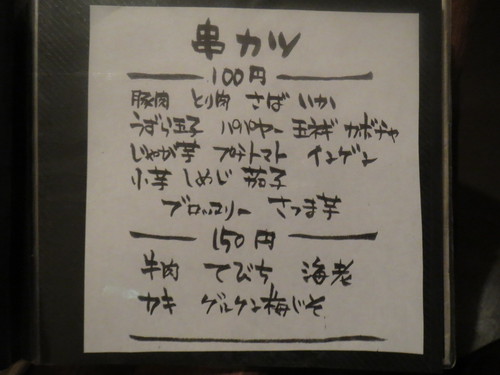 串カツ
100円
豚肉 とり肉 さば いか
うずら玉子 パパヤー 玉ネギ カボチャ
じゃが芋 プチトマト インゲン
小芋 しめじ 茄子
ブロッコリー さつま芋
150円
牛肉 てびち 海老
カキ 梅じそ